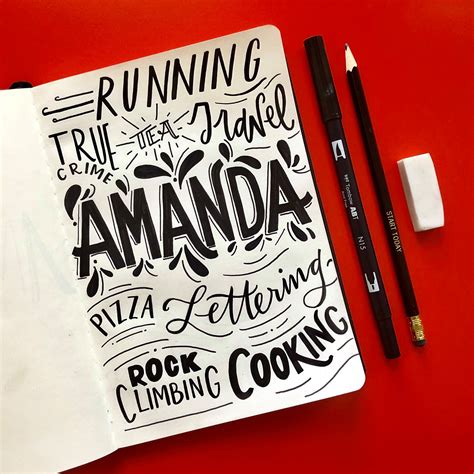 RUNNING
TRUE CRIME
TEA
Travel
AMANDA
PIZZA
Lettering
ROCK CLIMBING
COOKING
Tombow ABT
N15
START TODAY